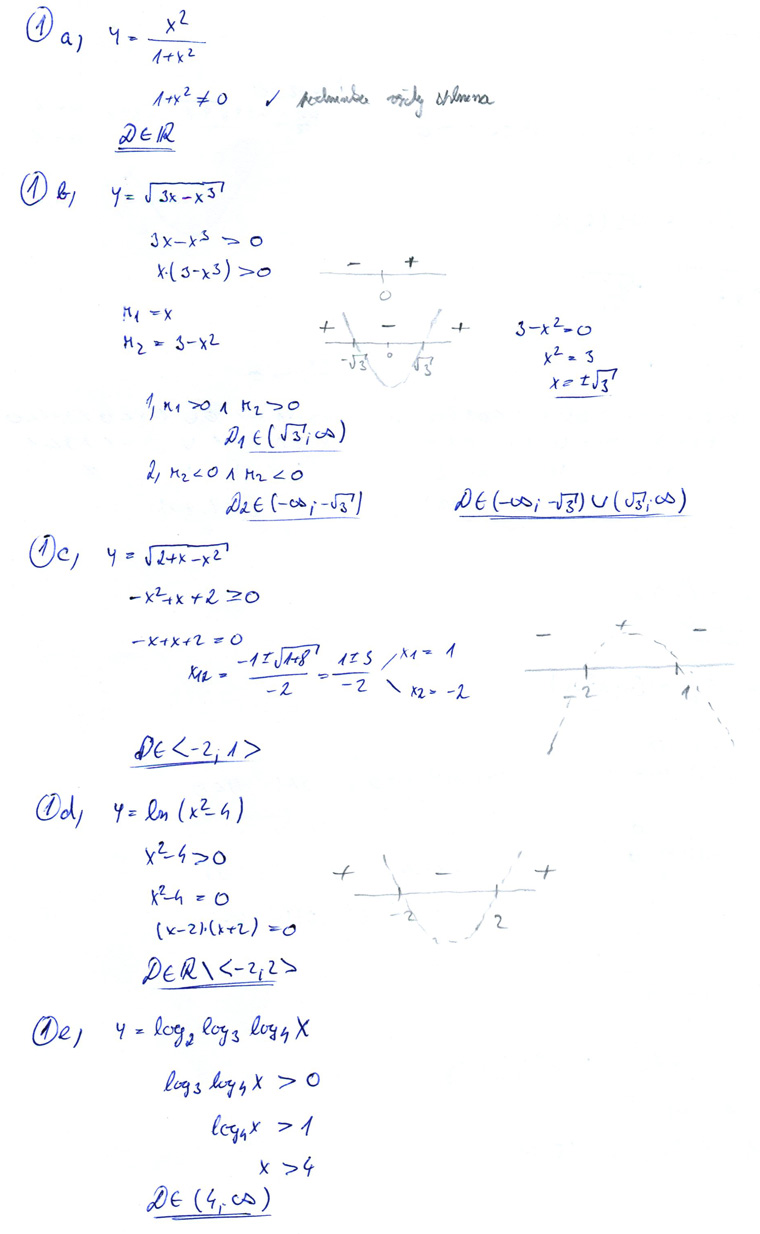 ① a, y = x² / (1+x²)
1+x² ≠ 0 ✓ podmínka vždy splněna
D∈ℝ
① b, y = √(3x−x³)
3x−x³ > 0
x·(3−x³) > 0
− +
0
n₁ = x
n₂ = 3−x²
+ − +
−√3 0 √3
3−x² = 0
x² = 3
x = ±√3
1, n₁ > 0 ∧ n₂ > 0
D₁∈(√3; ∞)
2, n₂ < 0 ∧ n₂ < 0
D₂∈(−∞; −√3)
D∈(−∞; −√3) ∪ (√3; ∞)
① c, y = √(2+x−x²)
−x²+x+2 ≥ 0
−x+x+2 = 0
x₁₂ = (−1±√(1+8)) / −2 = (1±3) / −2
x₁ = 1
x₂ = −2
− + −
−2 1
D∈<−2; 1>
① d, y = ln (x²−4)
x²−4 > 0
x²−4 = 0
(x−2)·(x+2) = 0
+ − +
−2 2
D∈ℝ∖<−2; 2>
① e, y = log₂ log₃ log₄ x
log₃ log₄ x > 0
log₄ x > 1
x > 4
D∈(4; ∞)